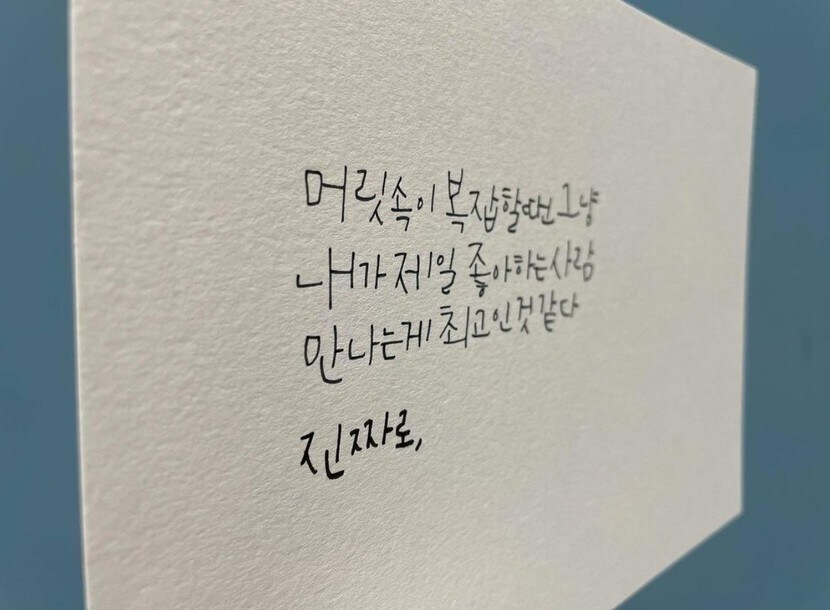 머릿속이 복잡할때번 그냥
내가 제일 좋아하는 사람
만나는게 최고인것 같다
진짜로,